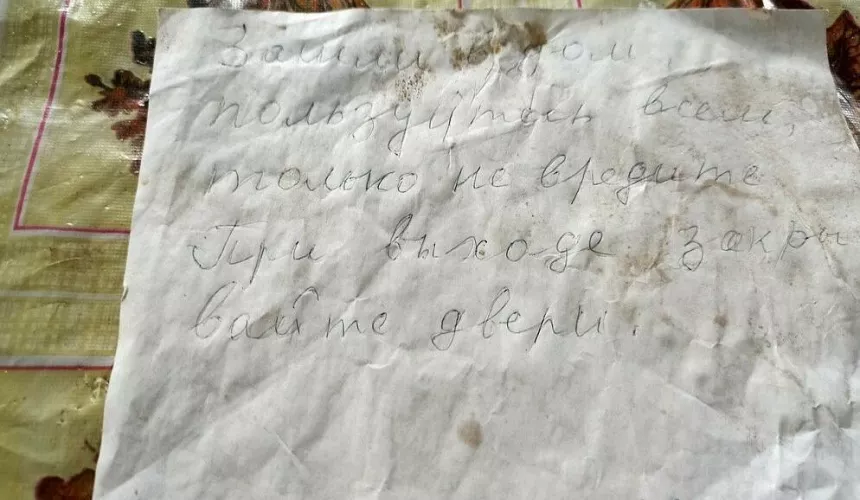 Зашли в дом,
пользуйтесь всем,
только не вредите
При выходе закры
вайте двери.